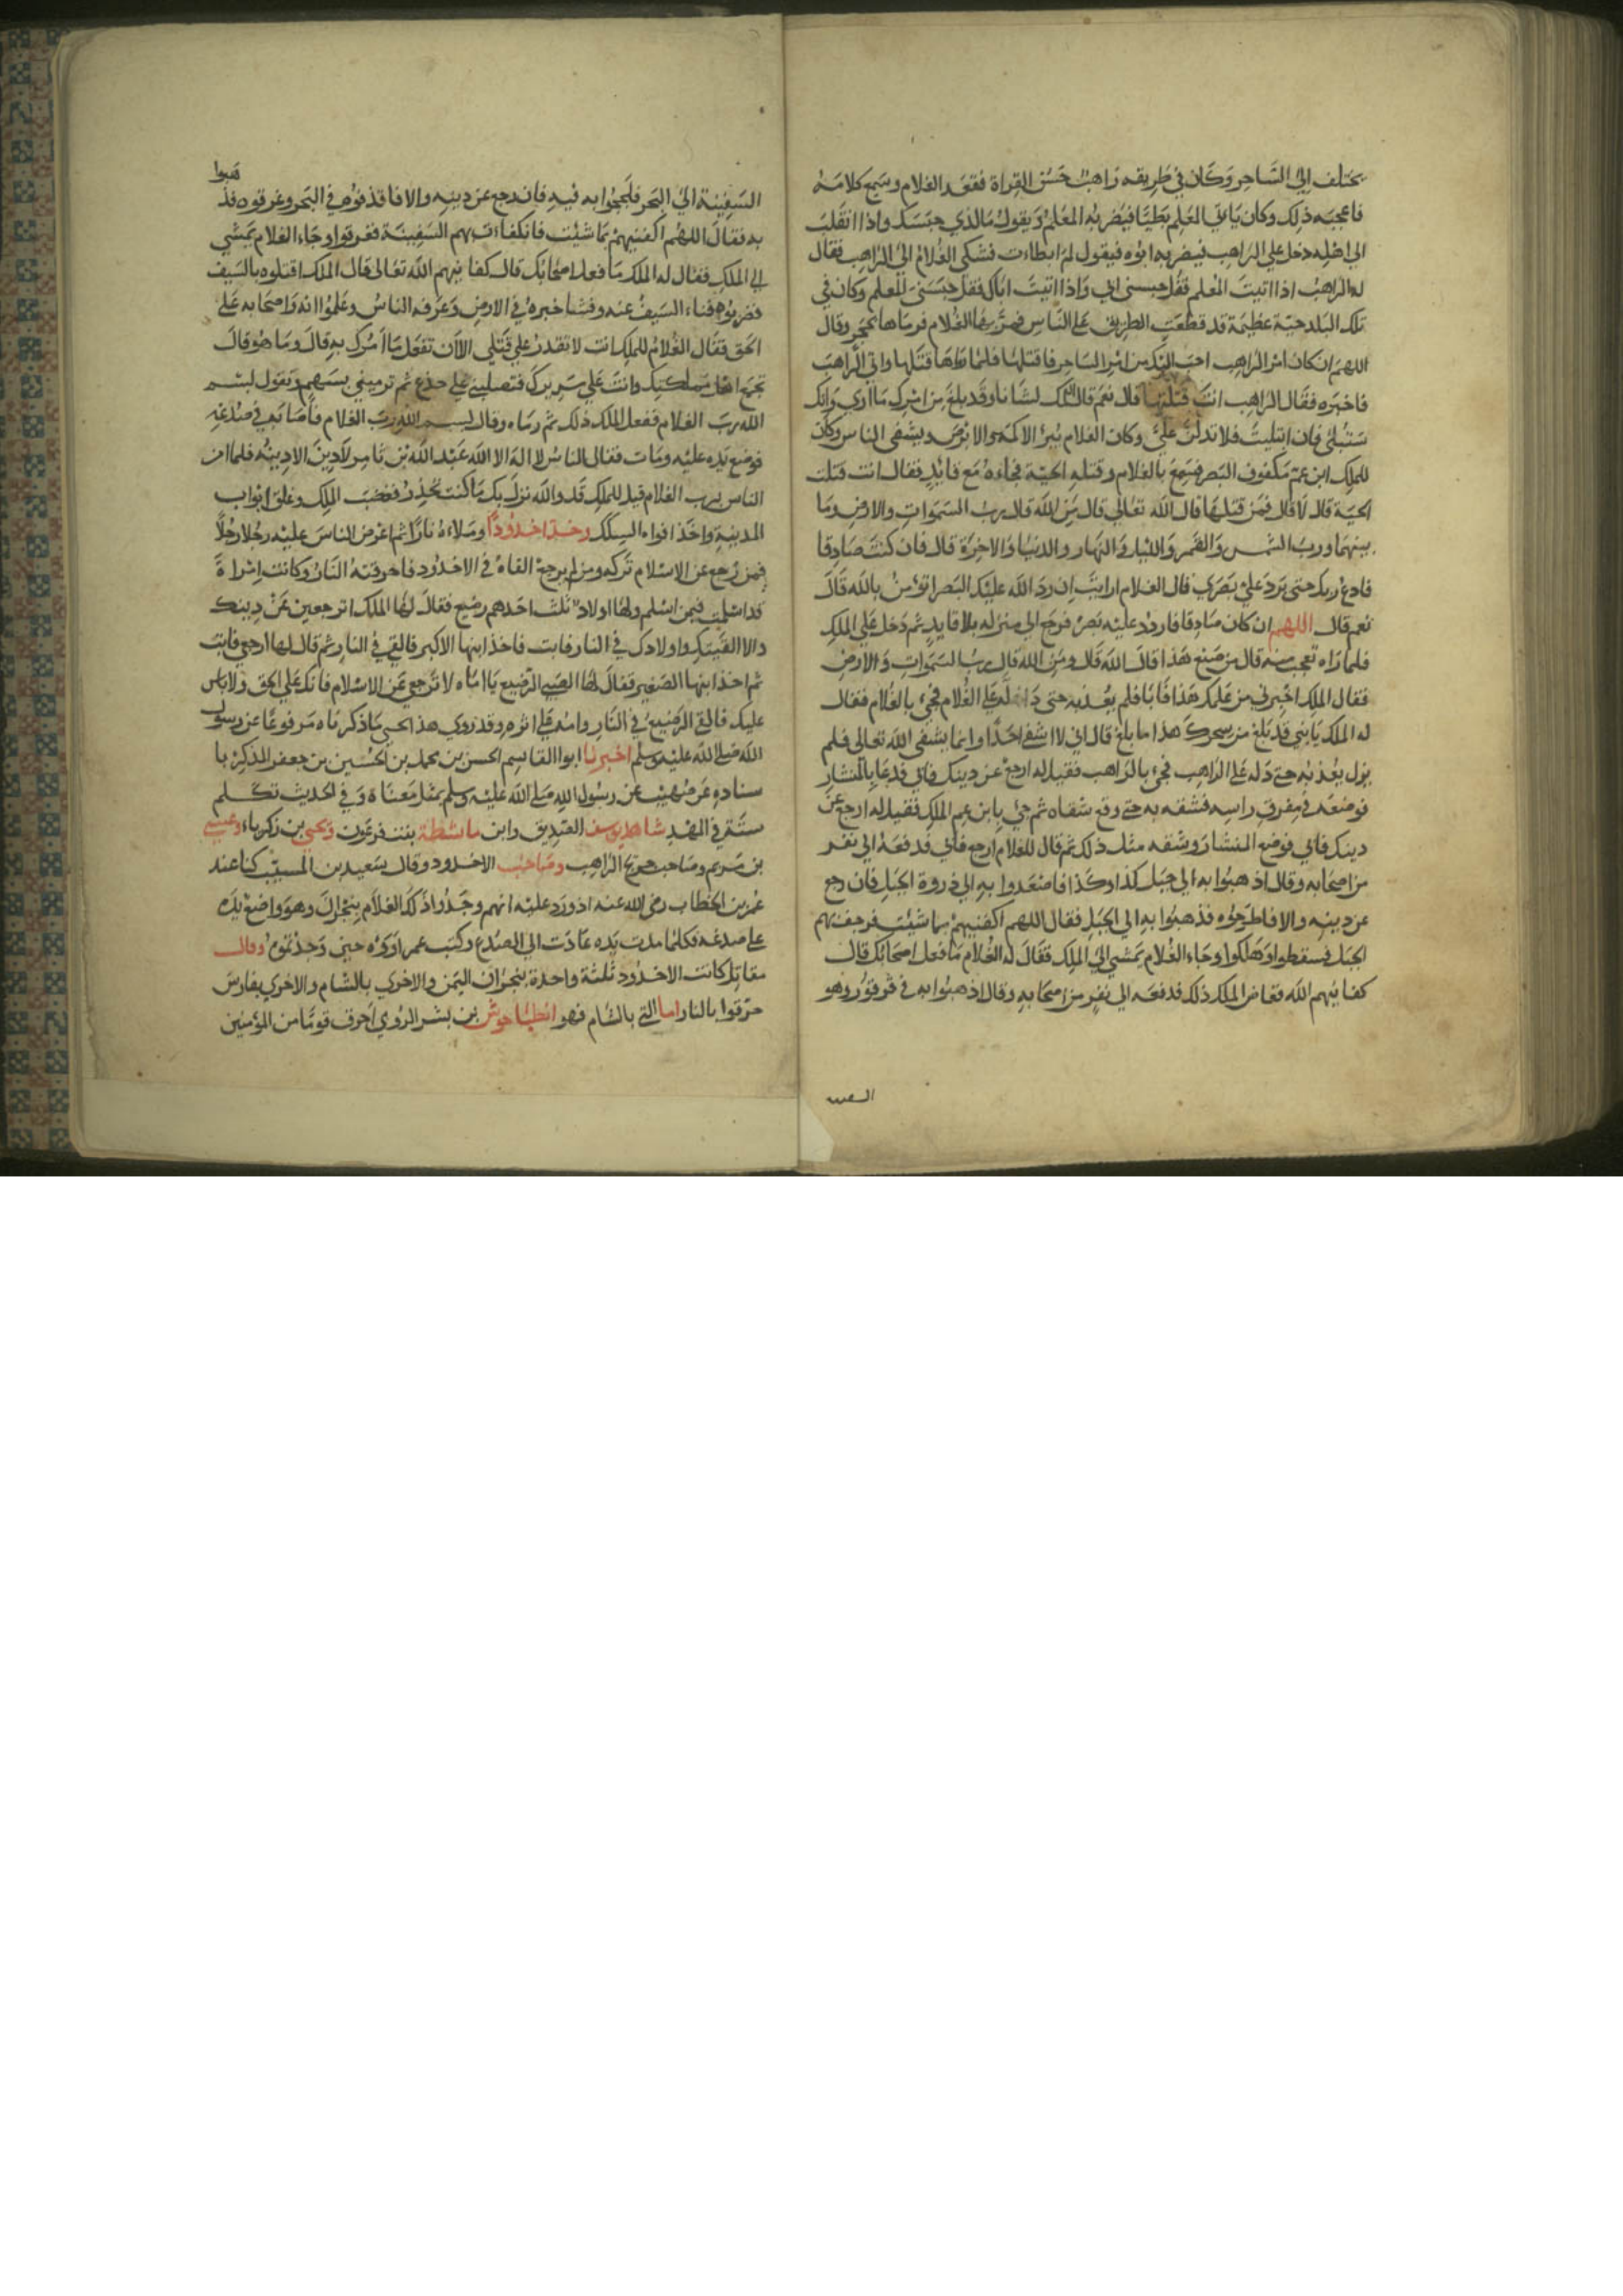 يختلف الى الساحر وكان في طريقه راهب حسن القراة فقعد الغلام وسمع كلامه
فاعجبه ذلك وكان ياتي المعلم بطيا فيضربه المعلم ويقول ما الذي حبسك واذا انقلب
الى اهله دخل على الراهب فيضربه ابوه فيقول لم ابطات فشكى الغلام الى الراهب فقال
له الراهب اذا اتيت المعلم فقل حبسني ابي واذا اتيت اباك فقل حبسني المعلم وكان في
تلك البلد حية عظيمة قد قطعت الطريق على الناس فمر بها الغلام فرماها بحجر وقال
اللهم ان كان امر الراهب احب اليك من امر الساحر فاقتلها فلما رماها قتلها واتى الراهب
فاخبره فقال الراهب انت قتلتها قال نعم قال ان لك لشانا وقد بلغ من امرك ما ارى وانك
ستبلى فان ابتليت فلا تدلن علي وكان الغلام يبرئ الاكمه والابرص ويشفي الناس وكان
للملك ابن عم مكفوف البصر فسمع بالغلام وقتله الحية فجاءه مع قايد فقال انت قتلت
الحية قال لا قال فمن قتلها قال الله تعالى قال من الله قال رب السموات والارض وما
بينهما ورب الشمس والقمر والليل والنهار والدنيا والاخرة قال فان كنت صادقا
فادع ربك حتى يرد علي بصري قال الغلام ارايت ان رد الله عليك البصر اتؤمن بالله قال
نعم قال اللهم ان كان صادقا فاردد عليه بصره فرجع الى منزله بلا قايد ثم دخل على الملك
فلما راه تعجب منه قال من صنع هذا قال الله قال ومن الله قال رب السموات والارض
فقال الملك اخبرني من علمك هذا فابا فلم يعذبه حتى دله على الغلام فجيء بالغلام فقال
له الملك يا بني قد بلغ من سحرك هذا ما بلغ قال اني لا اشفي احدا وانما يشفي الله تعالى فلم
يزل يعذبه حتى دله على الراهب فجيء بالراهب فقيل له ارجع عن دينك فابى فدعا بالمنشار
فوضعه في مفرق راسه فشقه به حتى وقع شقاه ثم جيء بابن عم الملك فقيل له ارجع عن
دينك فابى فوضع المنشار وشقه مثل ذلك ثم قال للغلام ارجع فابى فدفعه الى نفر
من اصحابه وقال اذهبوا به الى جبل كذا وكذا فاصعدوا به الى ذروة الجبل فان رجع
عن دينه والا فاطرحوه فذهبوا به الى الجبل فقال اللهم اكفنيهم بما شئت فرجف بهم
الجبل فسقطوا وهلكوا وجاء الغلام يمشي الى الملك فقال له الغلام ما فعل اصحابك قال
كفانيهم الله فغاض الملك ذلك فدفعه الى نفر من اصحابه وقال اذهبوا به في قرقور وهو
السفينة
فذهبوا
السفينة الى البحر فلججوا به فيه فان رجع عن دينه والا فاقذفوه في البحر وغرقوه فذ
به فقال اللهم اكفنيهم بما شئت فانكفات بهم السفينة فغرقوا وجاء الغلام يمشي
الى الملك فقال له الملك ما فعل اصحابك قال كفانيهم الله تعالى قال الملك اقتلوه بالسيف
فضربوه فناء السيف عنه وفشا خبره في الارض وعرفه الناس وعلموا انه واصحابه على
الحق فقال الغلام للملك انت لا تقدر على قتلي الا ان تفعل ما امرك به قال وما هو قال
تجمع اهل مملكتك وانت على سريرك فتصلبني على جذع ثم ترميني بسهم وتقول بسم
الله رب الغلام ففعل الملك ذلك ثم رماه وقال بسم الله رب الغلام فاصابه في صدغه
فوضع يده عليه ومات فقال الناس لا اله الا الله عبد الله بن ثامر لا دين الا دينه فلما امن
الناس برب الغلام قيل للملك قد والله نزل بك ما كنت تحذر فغضب الملك وغلق ابواب
المدينة واخذ افواه السكك وخد اخدودا وملاه نارا ثم اعرض الناس عليه رجلا رجلا
فمن رجع عن الاسلام تركه ومن لم يرجع القاه في الاخدود فاحرقته النار وكانت امراة
قد اسلمت فيمن اسلم ولها اولاد ثلث احدهم رضيع فقال لها الملك اترجعين عن دينك
والا القيتك واولادك في النار فابت فاخذ ابنها الاكبر فالقي في النار ثم قال لها ارجعي فابت
ثم اخذ ابنها الصغير فقال لها الصبي الرضيع يا اماه لا ترجع عن الاسلام فانك على الحق ولا باس
عليك فالقي الرضيع في النار وامه على اثره وقد روي هذا الحي ما ذكرناه مرفوعا عن رسول
الله صلى الله عليه وسلم اخبرنا ابوا القاسم الحسن بن محمد بن الحسين بن جعفر المذكر با
سناده عن صهيب عن رسول الله صلى الله عليه وسلم بمثل معناه وفي الحديث تكلم
ستة في المهد شاهد يوسف الصديق وابن ماشطة بنت فرعون ويحيى بن زكرياء وعيسى
بن مريم وصاحب جريج الراهب وصاحب الاخدود وقال سعيد بن المسيب كنا عند
عمر بن الخطاب رضي الله عنه اذ ورد عليه انهم وجدوا ذلك الغلام بنجران وهو واضع يده
على صدغه فكلما مدت يده عادت الى الصدغ وكتب عمر اوروه حيث وجدتموه وقال
مقاتل كانت الاخدود ثلثة واحدة بنجران اليمن والاخرى بالشام والاخرى بفارس
حرقوا بالنار اما التي بالشام فهو انطياحوش بن بشر الرومي احرق قوما من المؤمنين